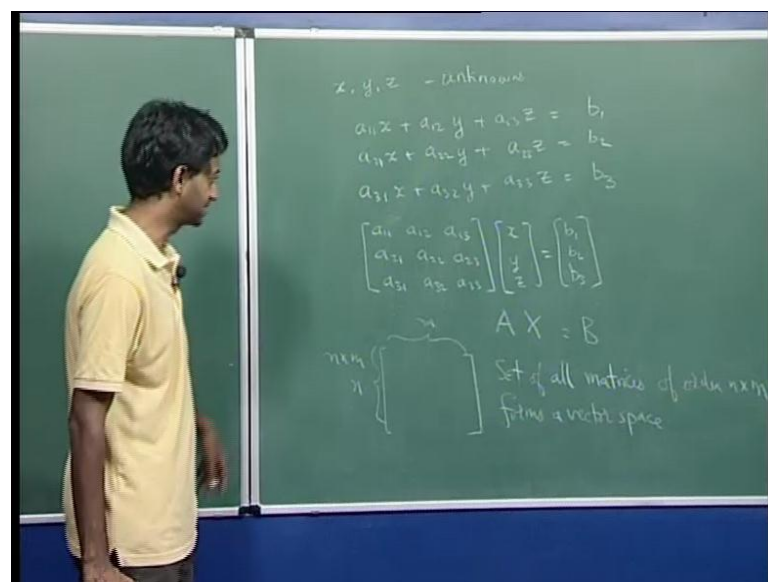 x, y, z - unknowns
a₁₁x + a₁₂y + a₁₃z = b₁
a₂₁x + a₂₂y + a₂₃z = b₂
a₃₁x + a₃₂y + a₃₃z = b₃
[a₁₁ a₁₂ a₁₃] [x] = [b₁]
[a₂₁ a₂₂ a₂₃] [y] = [b₂]
[a₃₁ a₃₂ a₃₃] [z] = [b₃]
A X = B
m
n×m
n
Set of all matrices of order n×m
forms a vector space